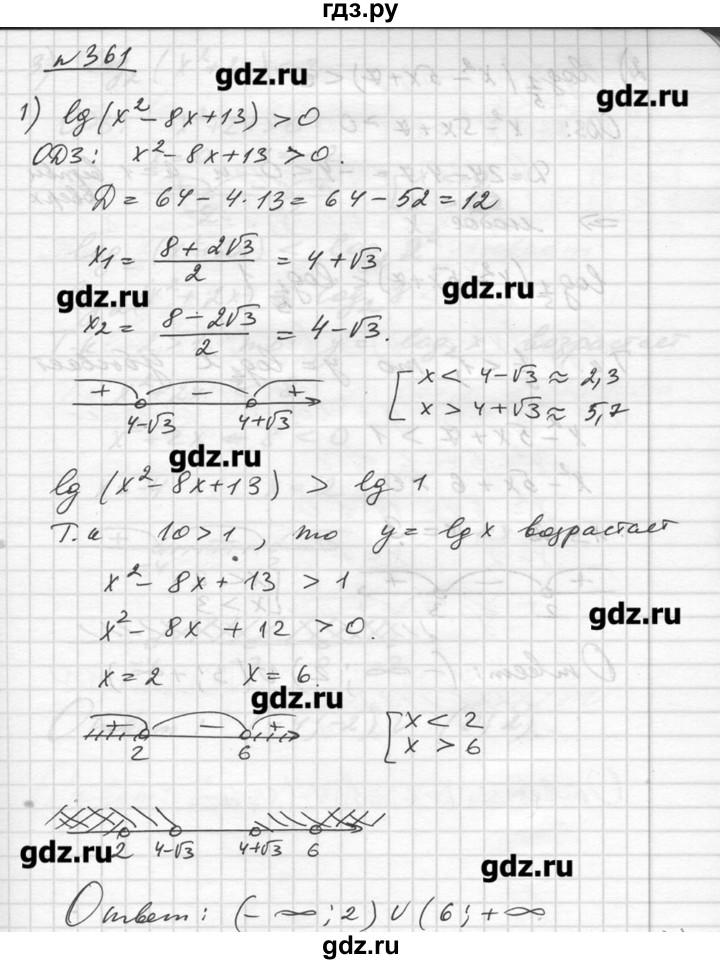 гдз.ру
№361
gdz.ru
gdz.ru
1) lg(x²-8x+13)>0
ОДЗ: x²-8x+13>0.
Д=64-4·13=64-52=12
x₁= (8+2√3)/2 = 4+√3
gdz.ru
gdz.ru
x₂= (8-2√3)/2 = 4-√3.
+ - +
4-√3 4+√3
[ x< 4-√3≈ 2,3
x>4+√3≈ 5,7
gdz.ru
lg (x²-8x+13) > lg 1
Т.к 10>1, то y=lgx возрастает
x²-8x+13 >1
gdz.ru
x²-8x+12 >0.
x=2 x=6.
gdz.ru
+ - +
2 6
[ x<2
x>6
2 4-√3 4+√3 6
gdz.ru
gdz.ru
Ответ: (-∞;2)∪(6;+∞
gdz.ru